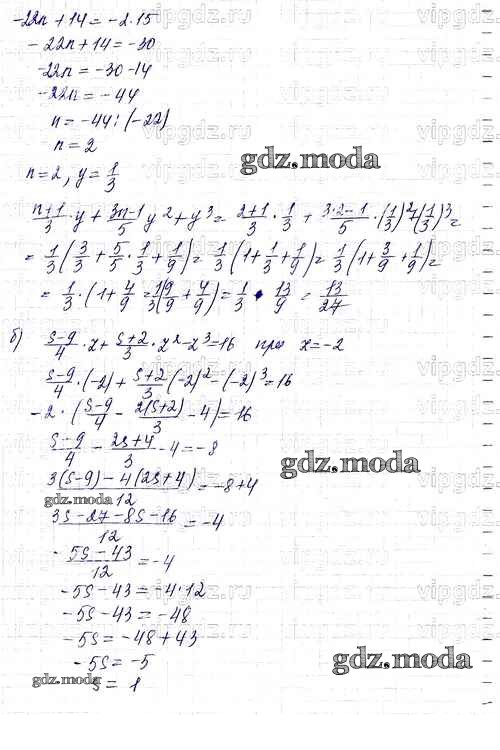 -22n + 14 = -2·15
-22n + 14 = -30
-22n = -30 - 14
-22n = -44
n = -44 : (-22)
n = 2
n = 2, y = 1/3
gdz.moda
(n+1)/3 · y + (3n-1)/5 y² + y³ = (2+1)/3 · 1/3 + (3·2-1)/5 · (1/3)² + (1/3)³ =
= 1/3 (3/3 + 5/5 · 1/3 + 1/9) = 1/3 (1 + 1/3 + 1/9) = 1/3 (1 + 3/9 + 1/9) =
= 1/3 · (1 + 4/9) = 1/3 (9/9 + 4/9) = 1/3 · 13/9 = 13/27
б) (s-9)/4 · x + (s+2)/3 · x² - x³ = 16 при x = -2
(s-9)/4 · (-2) + (s+2)/3 (-2)² - (-2)³ = 16
-2 · ((s-9)/4 - 2(s+2)/3 - 4) = 16
(s-9)/4 - (2s+4)/3 - 4 = -8
gdz.moda
(3(s-9) - 4(2s+4))/12 = -8 + 4
gdz.moda
(3s - 27 - 8s - 16)/12 = -4
(-5s - 43)/12 = -4
-5s - 43 = -4·12
-5s - 43 = -48
-5s = -48 + 43
-5s = -5
gdz.moda
gdz.moda
s = 1
vipgdz.ru